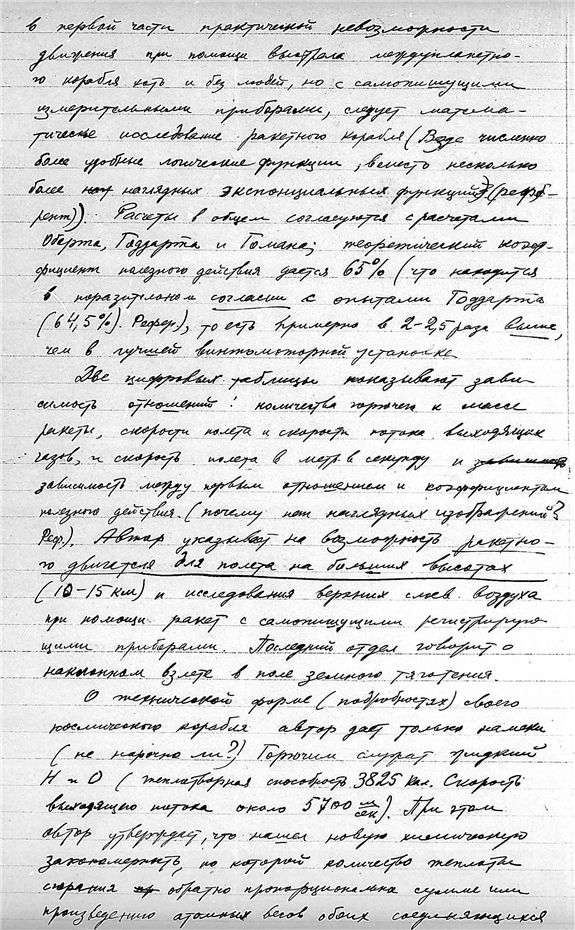 в первой части практической невозможности
движения при помощи выстрела междупланетно-
го корабля хоть и без людей, но с самопишущими
измерительными приборами, следует матема-
тическое исследование ракетного корабля (Везде численно
более удобные логические функции, вместо несколько
более наглядных экспонциальных функций) (рефе-
рент)). Расчеты в общем согласуются с расчетами
Оберта, Годдарта и Гомана; теоретический коэф-
фициент полезного действия дается 65% (что находится
в поразительном согласии с опытами Годдарта
(64,5%). Рефер.), то есть примерно в 2-2,5 раза выше,
чем в лучшей винтомоторной установке.
Две цифровых таблицы показывают зави-
симость отношений: количества горючего к массе
ракеты, скорости полета и скорости потока выходящих
газов, и скорость полета в метр. в секунду и зависимость
зависимость между первым отношением и коэффициентом
полезного действия. (почему нет наглядных изображений?
Реф.). Автор указывает на возможность ракетно-
го двигателя для полета на больших высотах
(10-15 км) и исследования верхних слоев воздуха
при помощи ракет с самопишущими регистрирую-
щими приборами. Последний отдел говорит о
наклонном взлете в поле земного тяготения.
О технической форме (подробностях) своего
космического корабля автор дает только намеки
(не нарочно ли?) Горючим служат жидкий
H и O (теплотворная способность 3825 кал. Скорость
выходящего потока около 5700 м/сек). При этом
автор утверждает, что нашел новую химическую
закономерность, по которой количество теплоты
сгорания обратно пропорционально сумме или
произведению атомных весов обоих соединяющихся